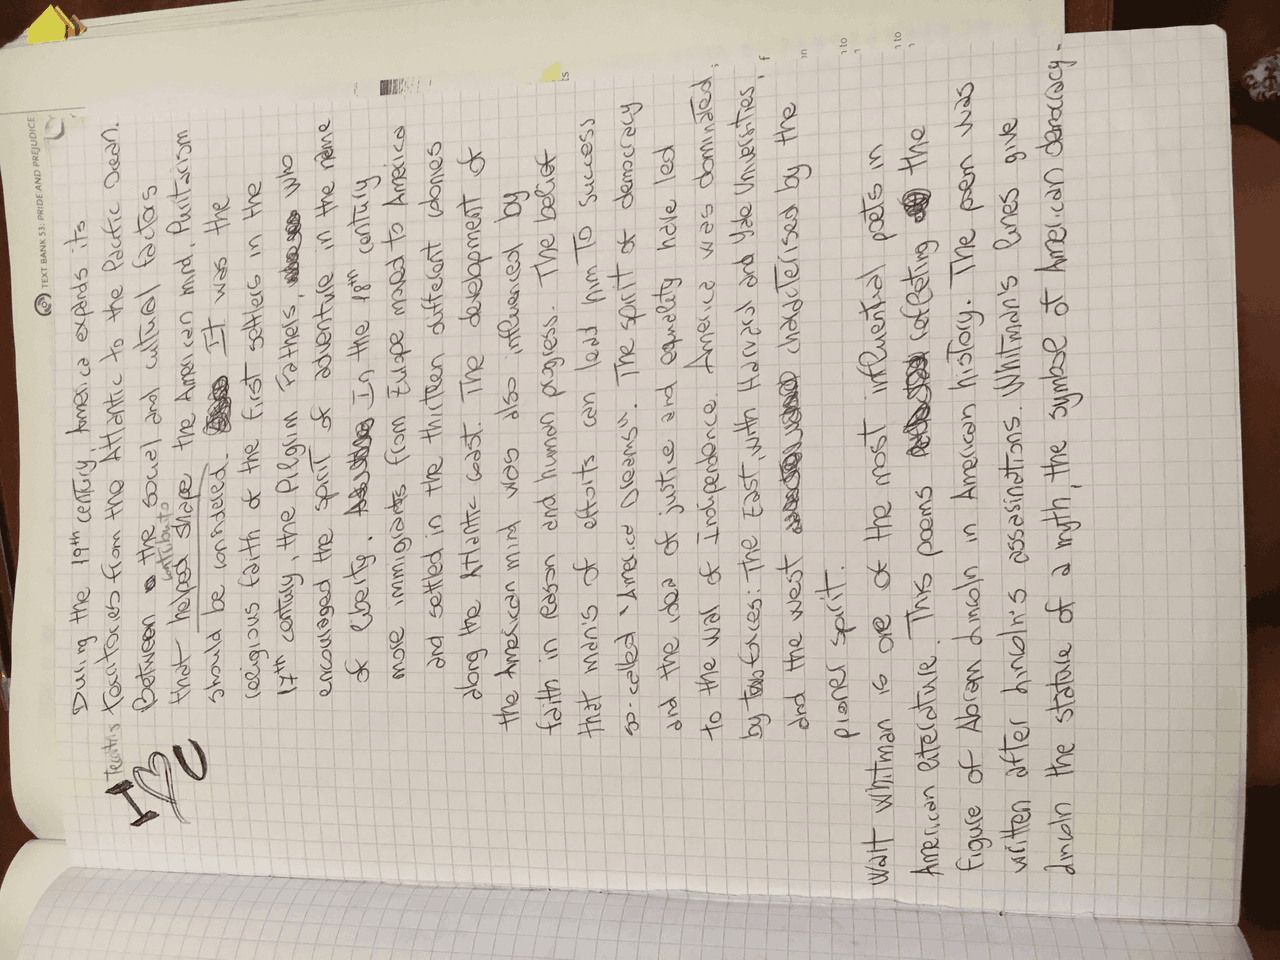 TEXT BANK 53: PRIDE AND PREJUDICE
During the 19th century, America expands its
Territories from the Atlantic to the Pacific Ocean.
Between the social and cultural factors
contribute to
that helped shape the American mind, Puritanism
should be considered. It was the
religious faith of the first settlers in the
17th century, the Pilgrim Fathers, who
encouraged the spirit of adventure in the name
of liberty. In the 18th century
more immigrants from Europe moved to America
and settled in the thirteen different colonies
along the Atlantic coast. The development of
the American mind was also influenced by
faith in reason and human progress. The belief
that man's of efforts can lead him To success
so-called "America Dreams". The spirit of democracy
and the idea of justice and equality have led
to the war of Independence. America was dominated
by two forces: The East, with Harvard and Yale Universities,
and the west characterised by the
pioner spirit.
I
U
Walt Whitman is one of the most influential poets in
American literature. This poems reflecting the
figure of Abram Lincoln in American history. The poem was
written after Lincoln's assasinations. Whitman's lines give
Lincoln the stature of a myth, the symbol of American democracy.